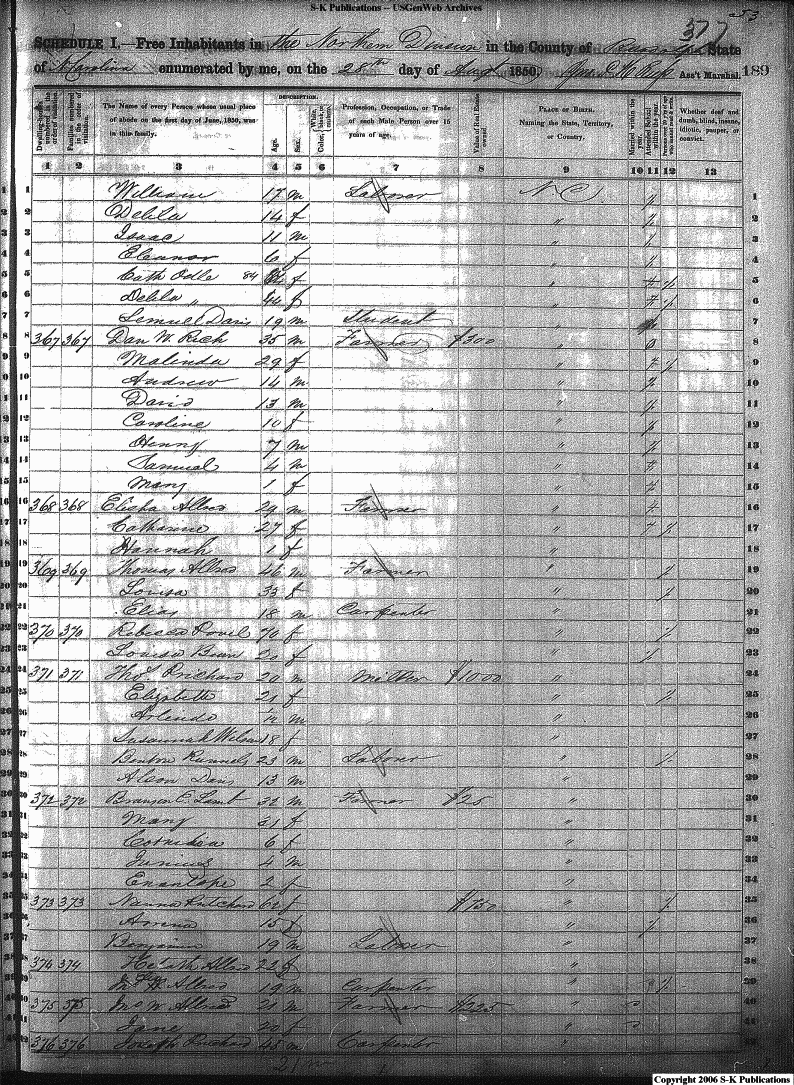 S-K Publications -- USGenWeb Archives
53
377
SCHEDULE I.—Free Inhabitants in the Northern Division in the County of Randolph State
of N Carolina enumerated by me, on the 28th day of Augt 1850. Ass't Marshal. 189
DESCRIPTION.
Dwelling-houses numbered in the order of visitation.
Families numbered in the order of visitation.
The Name of every Person whose usual place of abode on the first day of June, 1850, was in this family.
Age.
Sex.
Color, White, black, or mulatto.
Profession, Occupation, or Trade of each Male Person over 15 years of age.
Value of Real Estate owned.
PLACE OF BIRTH. Naming the State, Territory, or Country.
Married within the year.
Attended School within the year.
Persons over 20 y'rs of age who cannot read & write.
Whether deaf and dumb, blind, insane, idiotic, pauper, or convict.
1 2 3 4 5 6 7 8 9 10 11 12 13
1 William 17 m Laborer N C 1
2 Delila 14 f " 2
3 Isaac 11 m 3
4 Eleanor 6 f " 4
5 Cath Odle 84 f " 5
6 Delila " 44 f " 6
7 Lemuel Davis 19 m Student " 7
8 367 367 Dan W. Rich 35 m Farmer $300 " 8
9 Malinda 29 f " 9
10 Andrew 14 m " 10
11 David 13 m " 11
12 Caroline 10 f " 12
13 Henry 7 m " 13
14 Samuel 4 m " 14
15 Mary 1 f " 15
16 368 368 Elisha Allred 29 m Farmer " 16
17 Catharine 27 f " 17
18 Hannah 1 f " 18
19 369 369 Thomas Allred 46 m Farmer " 19
20 Louisa 33 f " 20
21 Elias 18 m Carpenter " 21
22 370 370 Rebecca 70 f " 22
23 Louisa 20 f " 23
24 371 371 Thos Prichard 20 m Miller $1000 " 24
25 Elizabeth 21 f " 25
26 m " 26
27 Susannah Wilson 18 f " 27
28 Benton 23 m Laborer " 28
29 Alson Davis 13 m " 29
30 372 372 Branson C. Lamb 32 m Farmer $25 " 30
31 Mary 31 f " 31
32 Cornelia 6 f " 32
33 Junius 4 m " 33
34 2 f " 34
35 373 373 Prichard 62 f $750 " 35
36 15 f " 36
37 Benjamin 19 m Laborer " 37
38 374 374 Allred 22 f " 38
39 Allred 19 m Carpenter " 39
40 375 375 Allred 21 m Farmer $225 " 40
41 Jane 20 f " 41
42 376 376 Joseph Prichard 48 m Carpenter " 42
Copyright 2006 S-K Publications